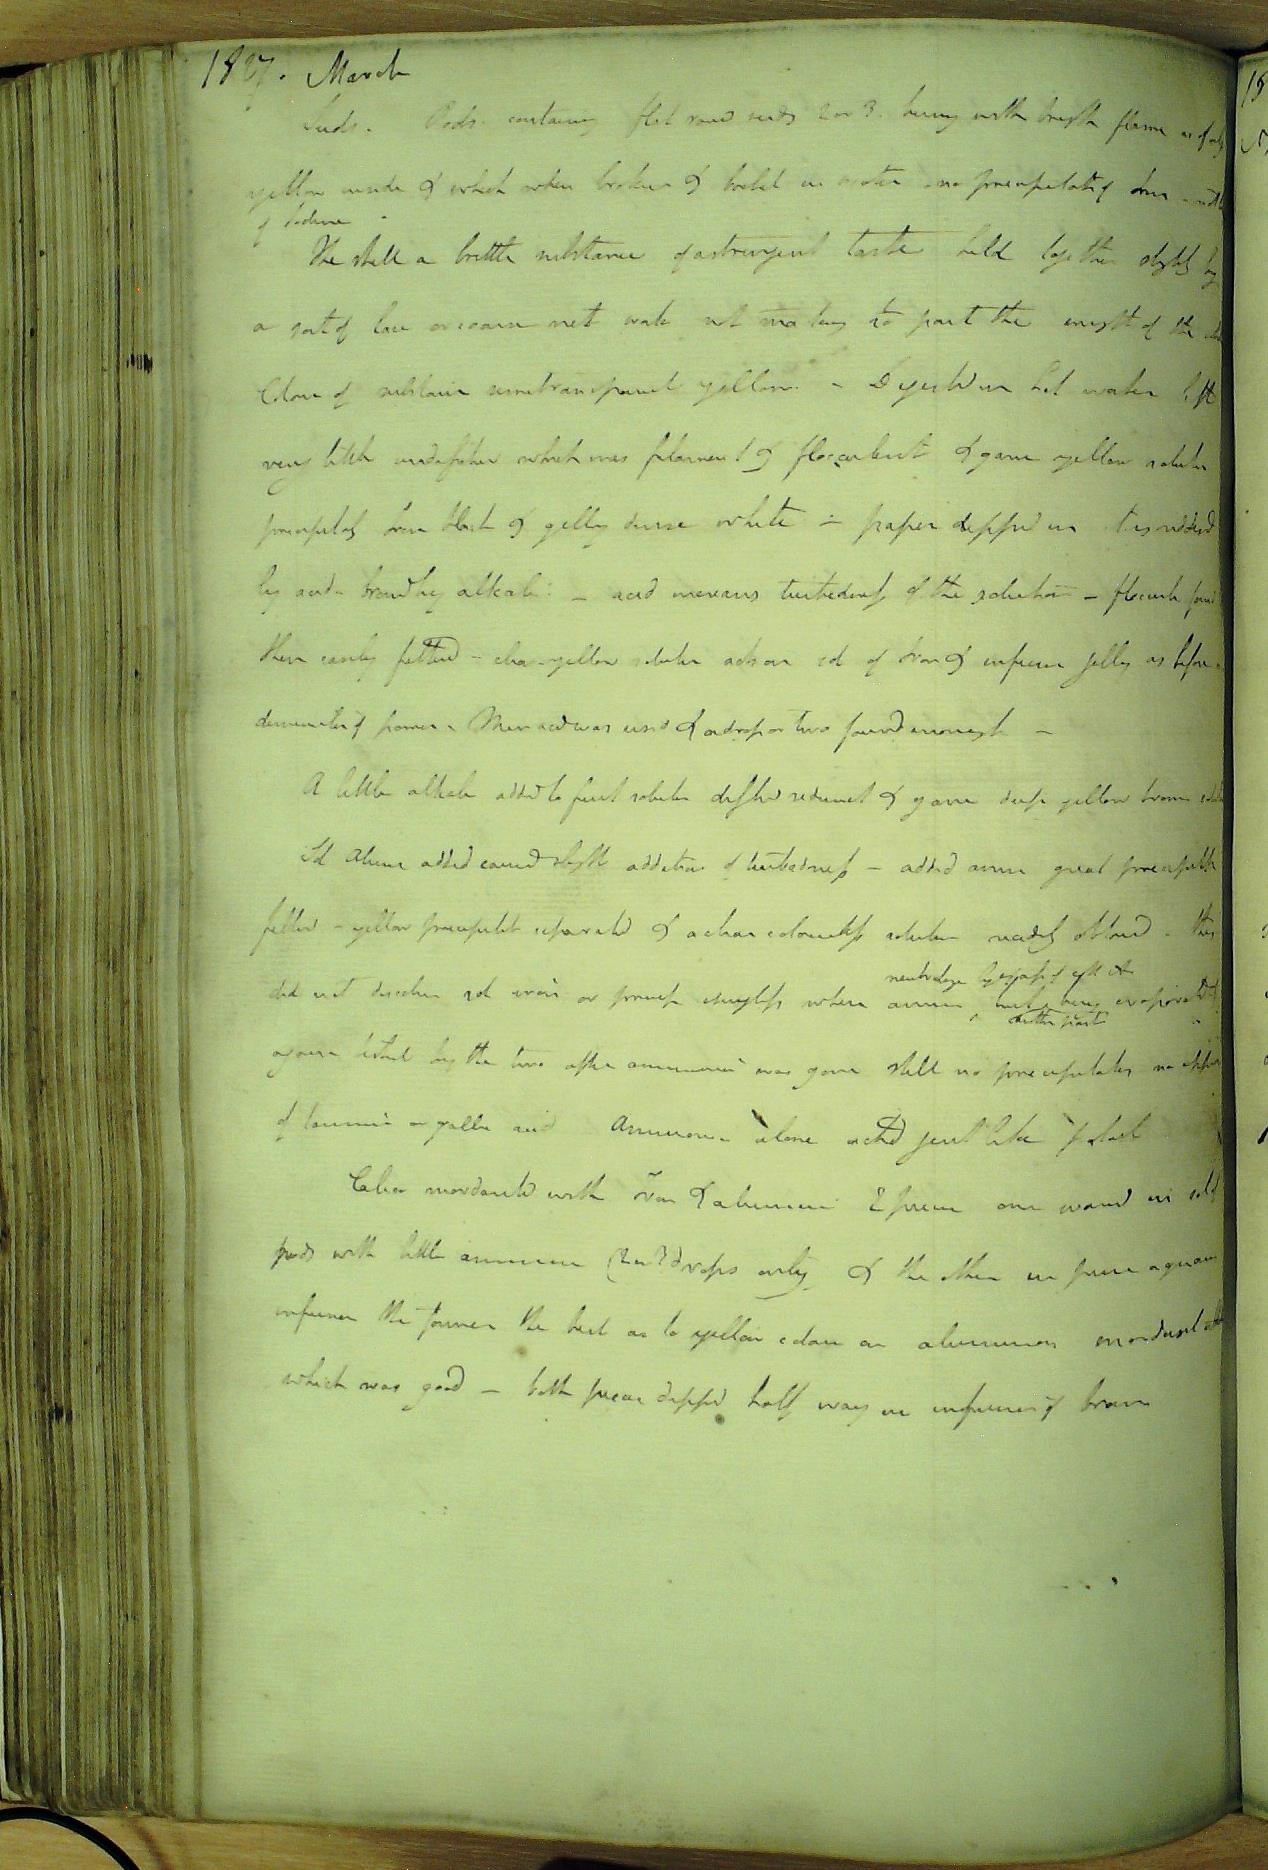 1827. March
Seeds. Pods containing flat round seeds 2 or 3. burny with bright flame as if oily
yellow inside & which when broken & boiled in water no precipitate of iron
of Iodine
The shell a brittle substance of astringent taste held together slightly by
a sort of lace or coarse net work not making to part the weight of the
Colour of substance semitransparent yellow. - Digested in hot water left
very little undissolved which was filament & flocculent & gave yellow solution
precipitatg Iron black & jelly dense white - paper dipped in it is reddened
by acid - browned by alkali - acid increases turbidness of the solution - flocculi formed
then easily filtered - clear yellow solution acts on sol of Iron & infusion jelly as before
diminution of power. Mur acid was used & a drop or two found enough -
A little alkali added to first solution dissolved sediment & gave deep yellow brown
Sol Alum added caused slight addition of turbidness - added amm great precipitate
filtered - yellow precipitate separated & a clear colourless solution readily obtained - this
neutralize by excess of
did not discolour sol iron or precip isinglass when amm being evaporated
further part
again tested by the two after ammonia was gone still no precipitates no
of tannin or gallic acid Ammonia alone acted just like potash
Calico mordanted with Iron & alumina 2 pieces one warmed in sol of
pods with little ammonia (2 or 3 drops only) & the other in pure aqueous
infusion the former the best as to yellow colour on aluminous mordant
which was good - both pieces dipped half way in infusion of bran